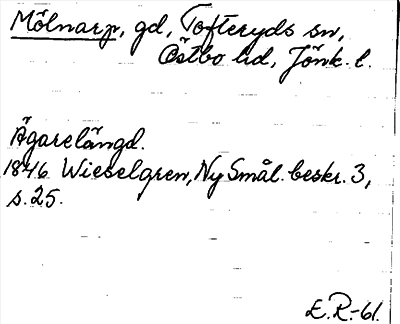 Mölnarp, gd, Tofteryds sn,
Östbo hd, Jönk. l.
Ägarelängd.
1846. Wieselgren, Ny Smål. beskr. 3,
s. 25.
E.R.-61.